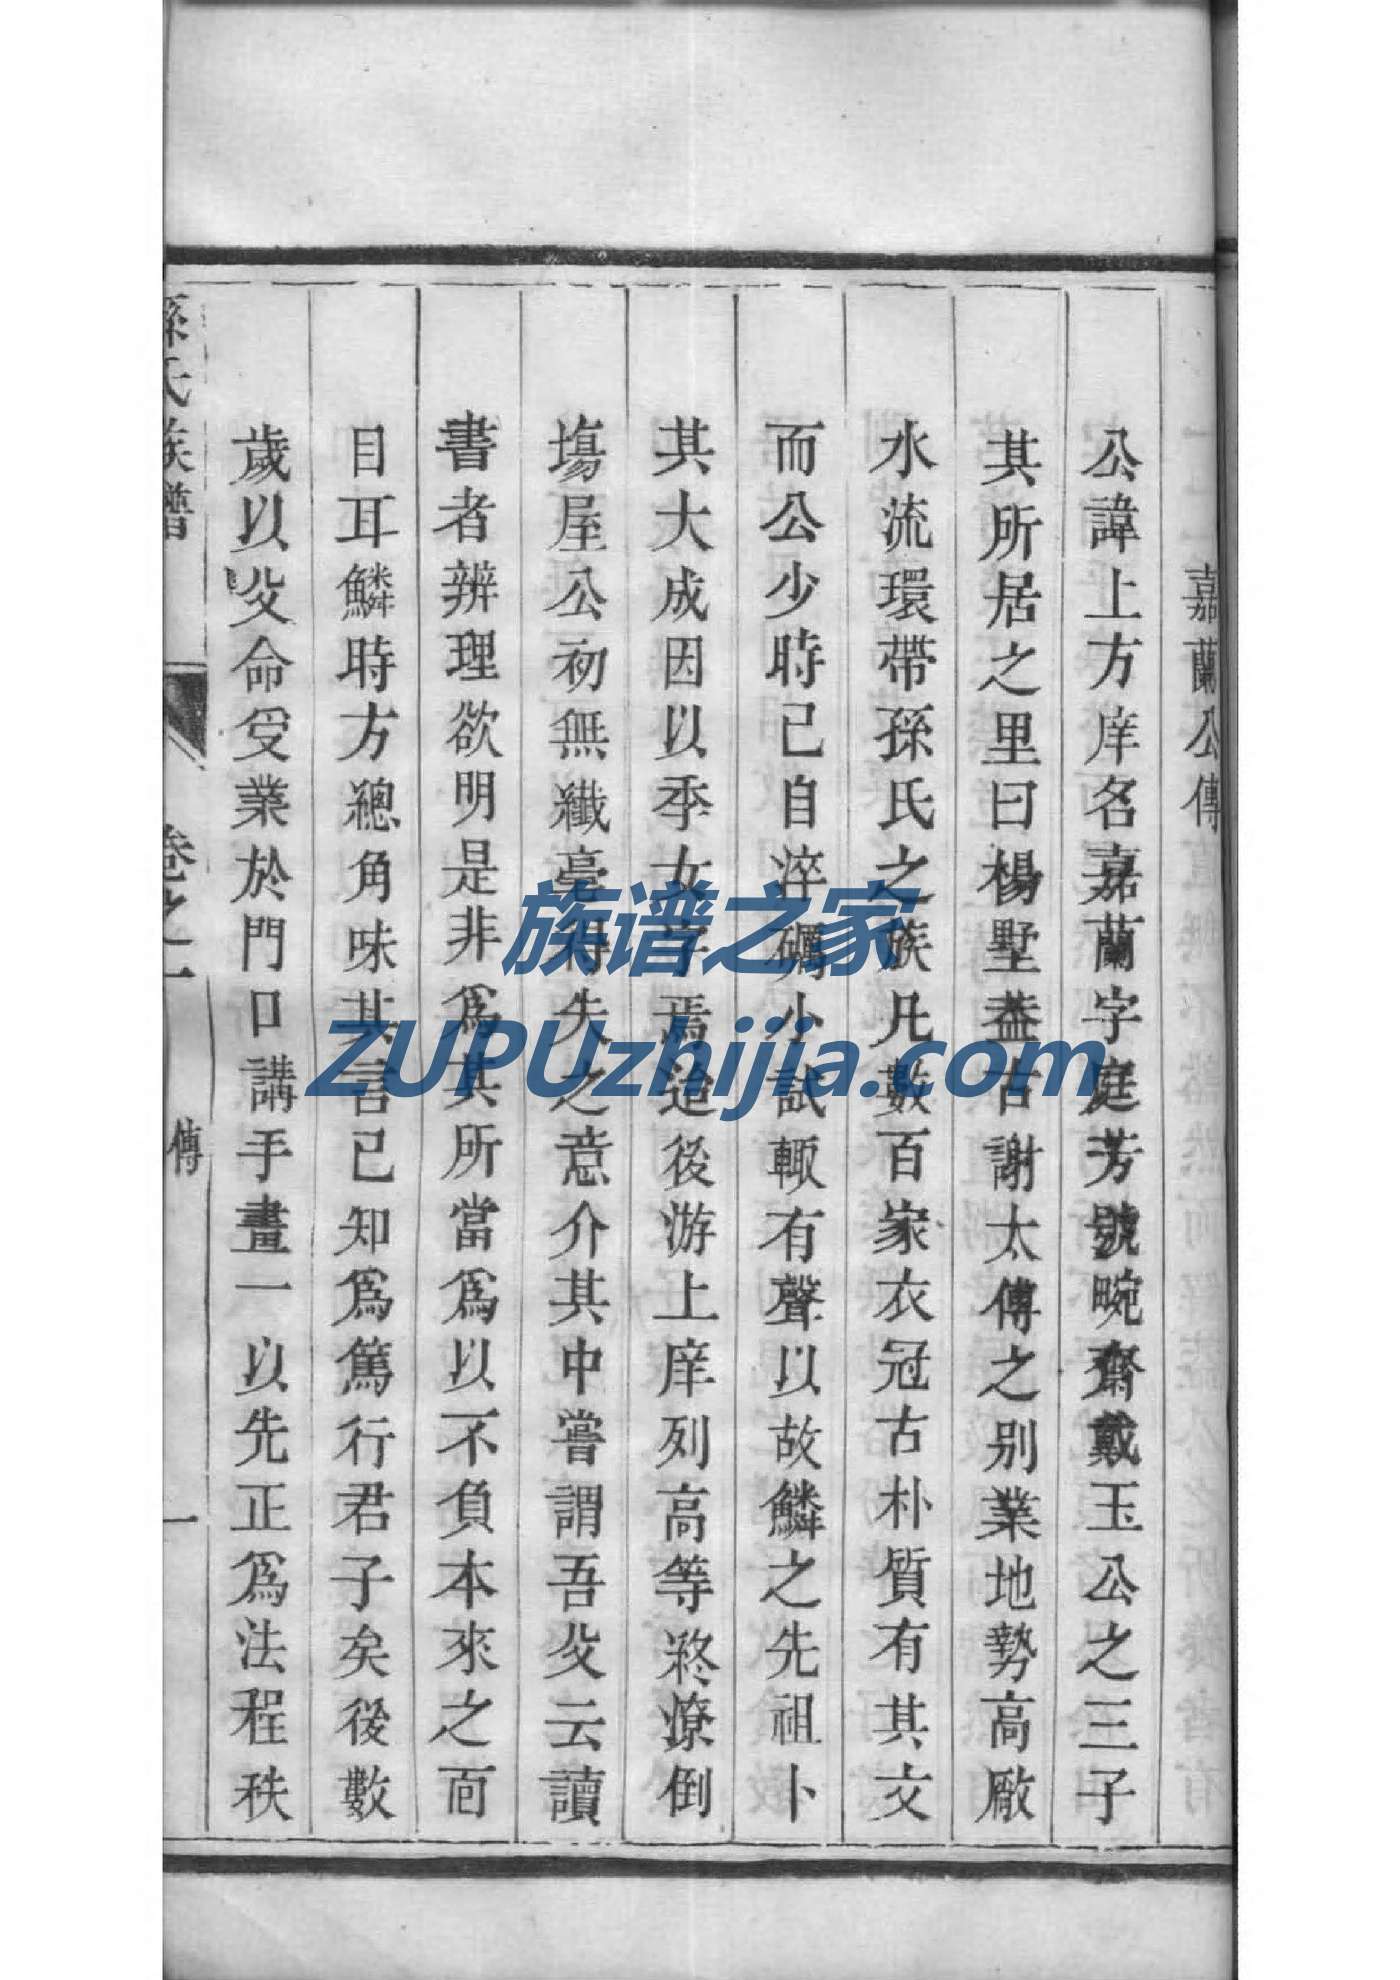 嘉蘭公傳
公諱上方庠名嘉蘭字庭芳號畹齋戴玉公之三子
其所居之里曰楊墅葢古謝太傅之别業地勢高厰
水流環帶孫氏之族凡數百家衣冠古朴質有其文
而公少時已自淬礪小試輙有聲以故鱗之先祖卜
其大成因以季女字焉迨後游上庠列高等終潦倒
塲屋公初無纎毫得失之意介其中嘗謂吾父云讀
書者辨理欲明是非爲其所當爲以不負本來之面
目耳鱗時方總角味其言已知爲篤行君子矣後數
歲以父命受業於門口講手畫一以先正爲法程秩
孫氏族譜
卷之一
傳
一
族谱之家
ZUPUzhijia.com